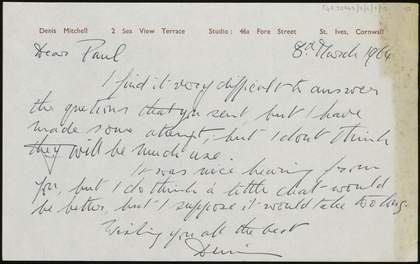 Denis Mitchell 2 Sea View Terrace Studio: 46a Fore Street St. Ives, Cornwall
Dear Paul 8th March 1964
I find it very difficult to answer
the questions that you sent, but I have
made some attempt, but I don't think
they will be much use.
It was nice hearing from
you, but I do think a little chat would
be better, but I suppose it would take too long.
Wishing you all the best
Denis